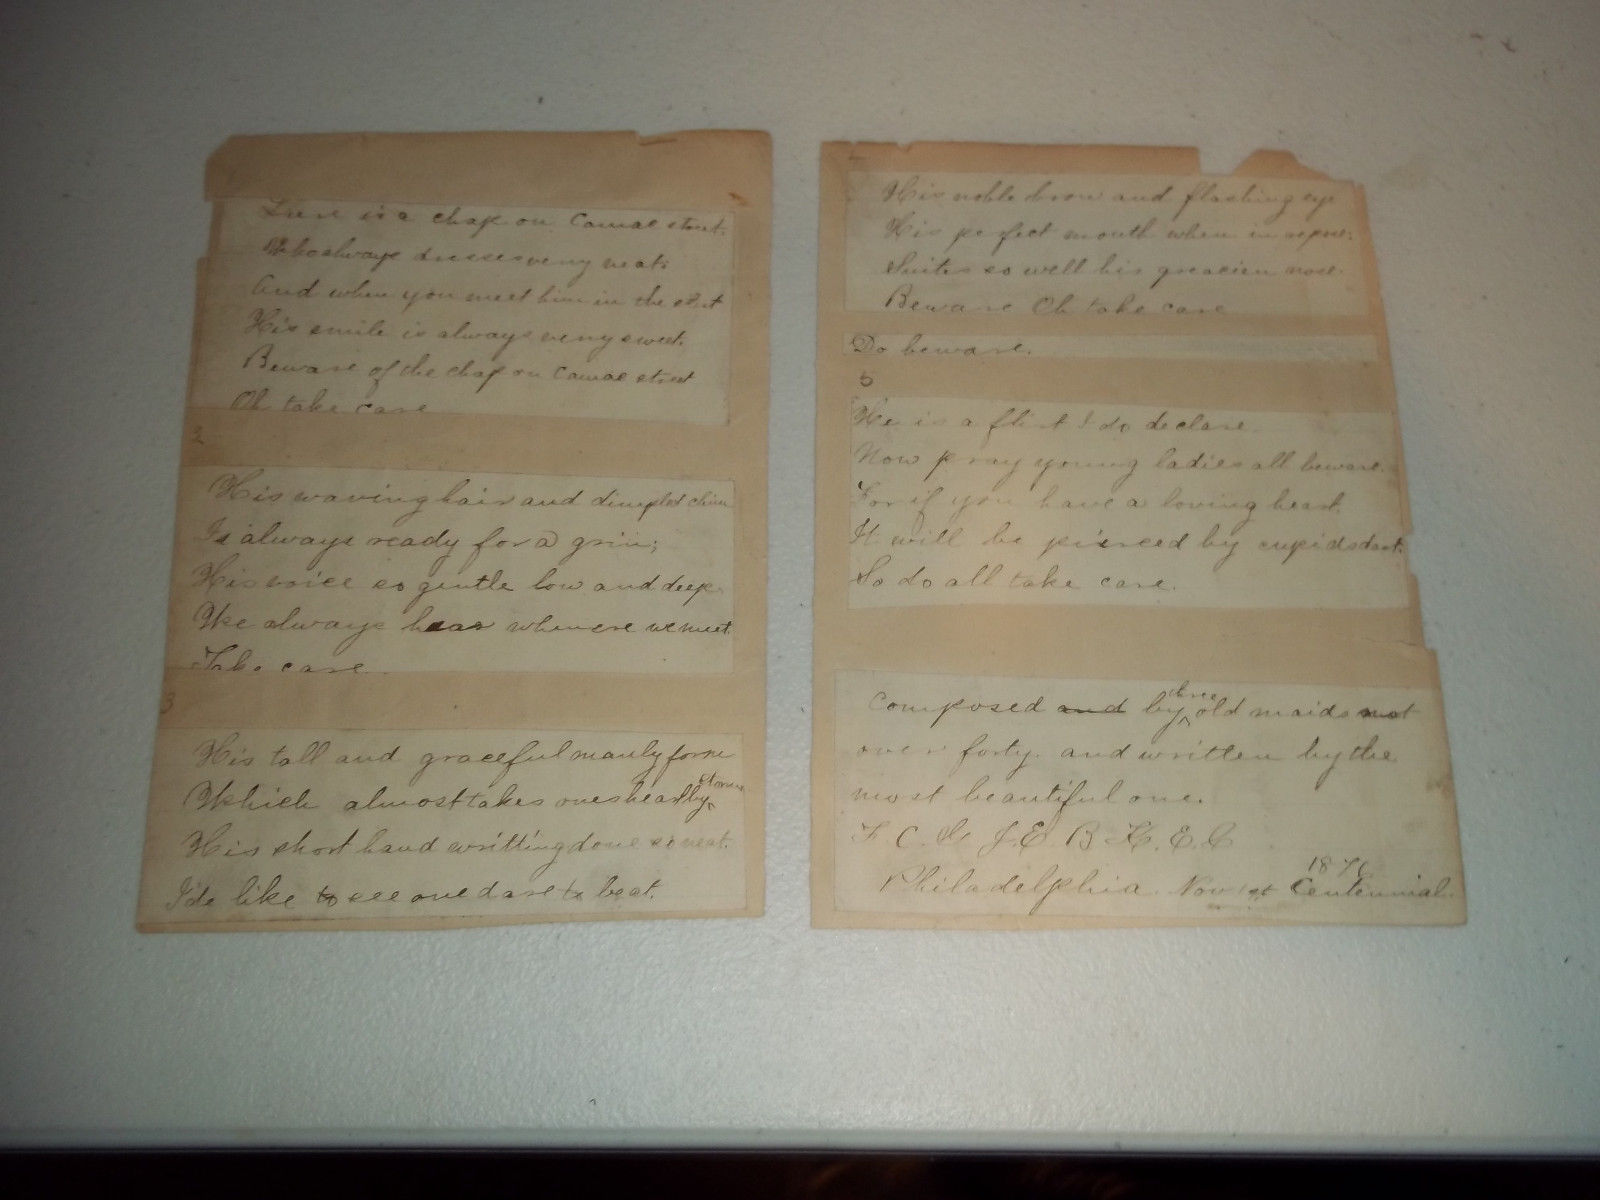 There is a chap on Camac street.
Who always dresses very neat;
And when you meet him in the street
His smile is always very sweet.
Beware of the chap on Camac street
Oh take care
2
His waving hair and dimpled chin
Is always ready for a grin;
His voice so gentle low and deep.
We always hear whenere we meet.
Take care.
3
His tall and graceful manly form
Which almost takes ones heart by storm
His short hand writting done so neat.
I'de like to see one dare to beat.
His noble brow and flashing eye
His perfect mouth when in repose.
Suites so well his greacien nose.
Beware Oh take care
Do beware.
5
He is a flirt I do declare.
Now pray young ladies all beware.
For if you have a loving heart.
It will be pierced by cupids dart.
So do all take care.
Composed and by three old maids not
over forty. and written by the
most beautiful one.
J. E. B
Philadelphia. Nov 1st Centennial. 1876